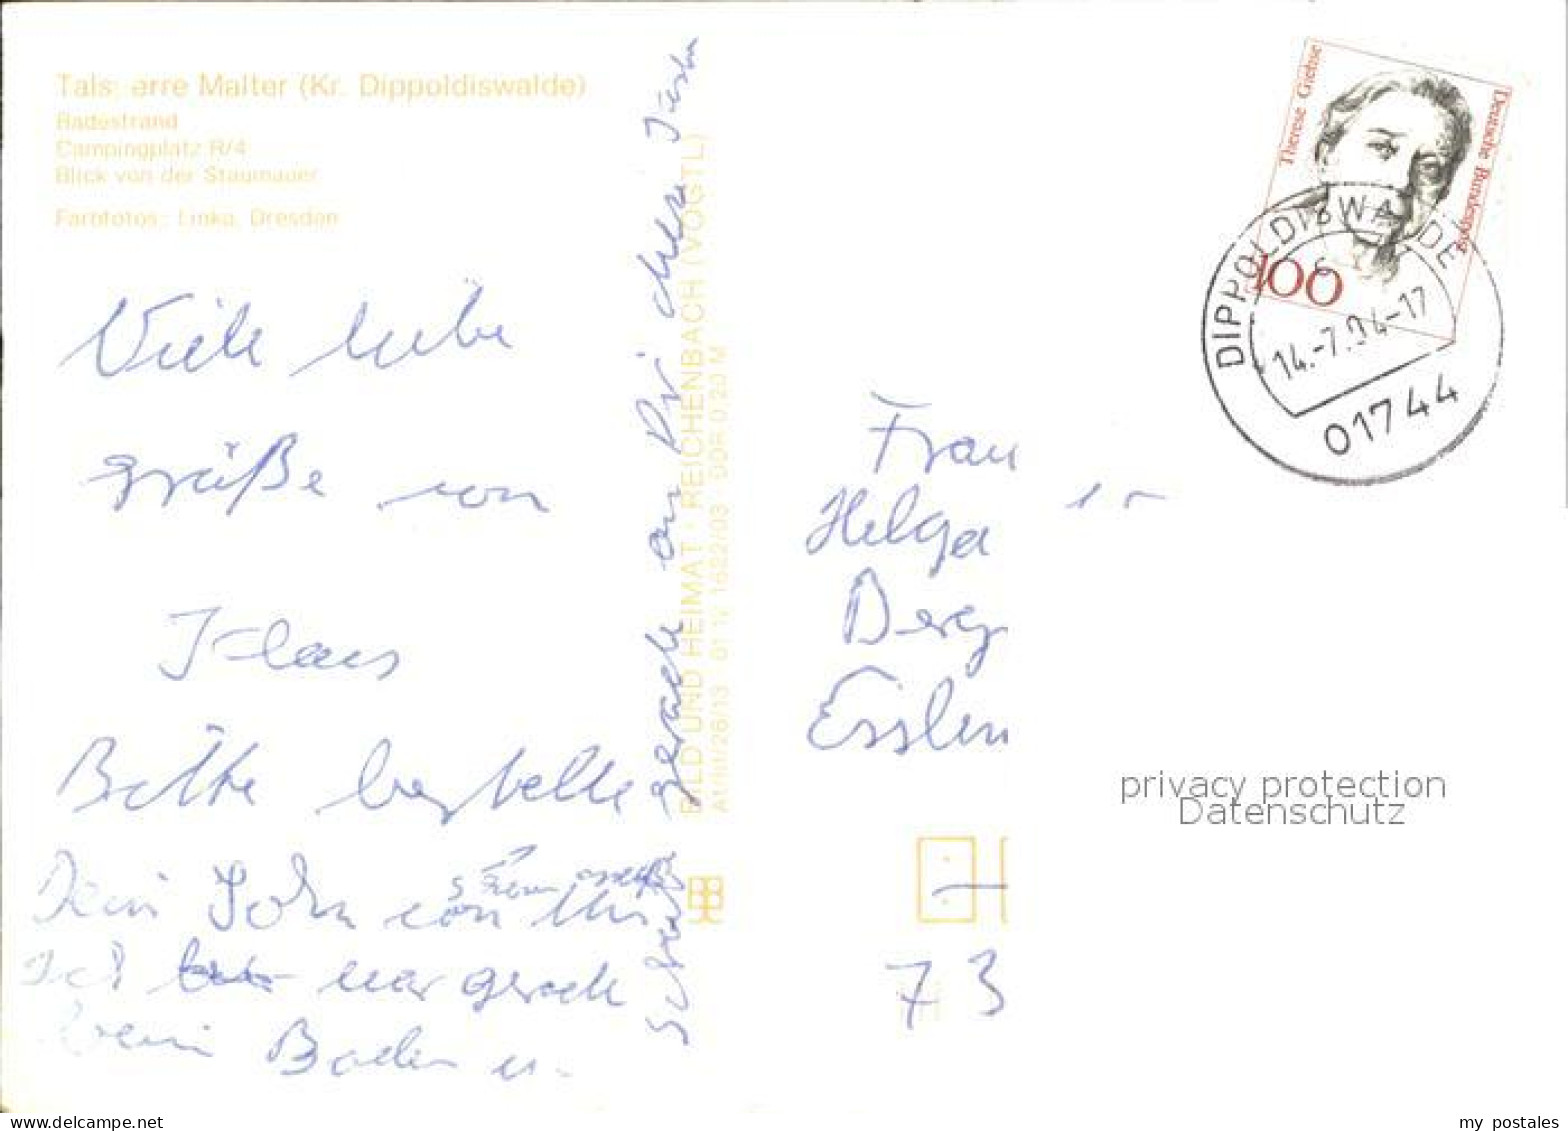 Talsperre Malter (Kr. Dippoldiswalde)
Badestrand
Campingplatz R/4
Blick von der Staumauer
Farbfotos: Linke, Dresden
Viele liebe
grüße von
Klaus
Bitte bestelle
Dein John von
Ich war gerade
beim Baden u.
gerade an Dich
BILD UND HEIMAT · REICHENBACH (VOGTL)
A1/III/26/13 01 12 1622/03 DDR 0,20 M
Therese Giehse
Deutsche Bundespost
100
DIPPOLDISWALDE
14.-7.94-17
01744
Frau
Helga
Berg
Esslin
73
privacy protection
Datenschutz
my postales